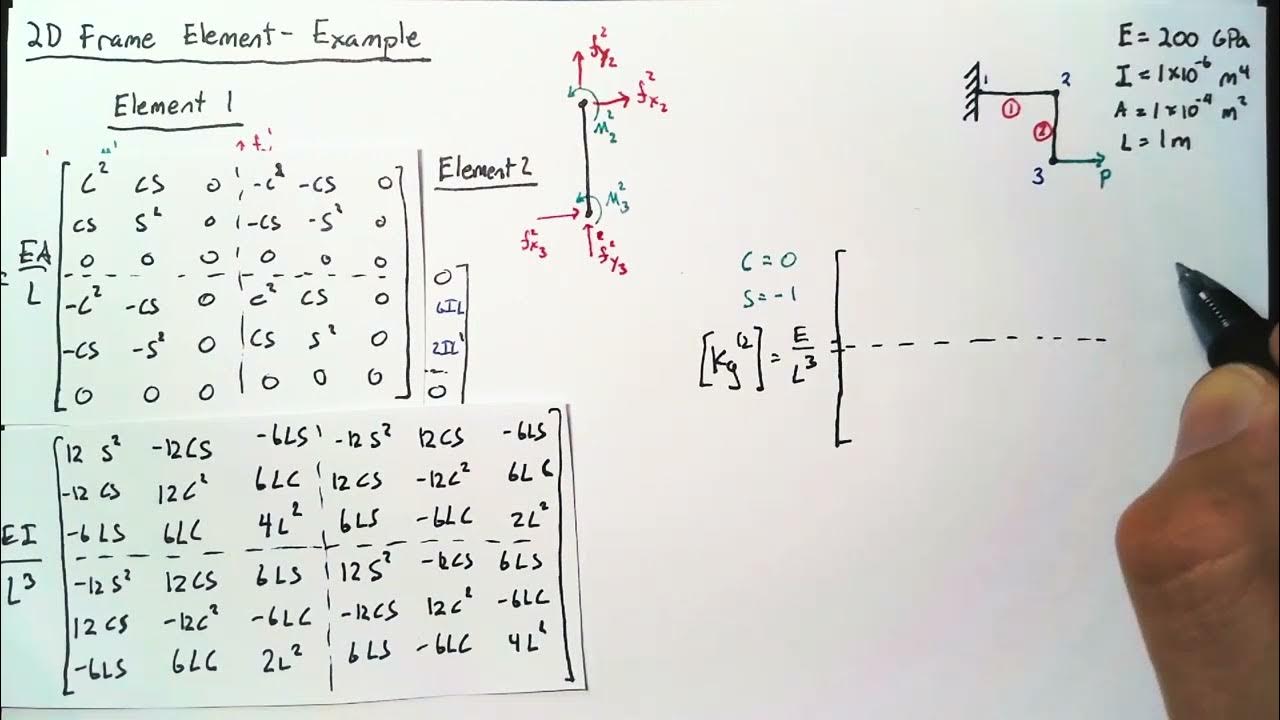 2D Frame Element - Example
Element 1
EA/L
C² CS 0 -C² -CS 0
CS S² 0 -CS -S² 0
0 0 0 0 0 0
-C² -CS 0 C² CS 0
-CS -S² 0 CS S² 0
0 0 0 0 0 0
Element 2
0
6IL
2IL²
0
EI/L³
12S² -12CS -6LS -12S² 12CS -6LS
-12CS 12C² 6LC 12CS -12C² 6LC
-6LS 6LC 4L² 6LS -6LC 2L²
-12S² 12CS 6LS 12S² -12CS 6LS
12CS -12C² -6LC -12CS 12C² -6LC
-6LS 6LC 2L² 6LS -6LC 4L²
f²y2
f²x2
M²2
M²3
f²x3
f²y3
C = 0
S = -1
[Kg⁽²⁾] = E/L³
1 2
① ②
3 P
E = 200 GPa
I = 1×10⁻⁶ m⁴
A = 1×10⁻⁴ m²
L = 1m